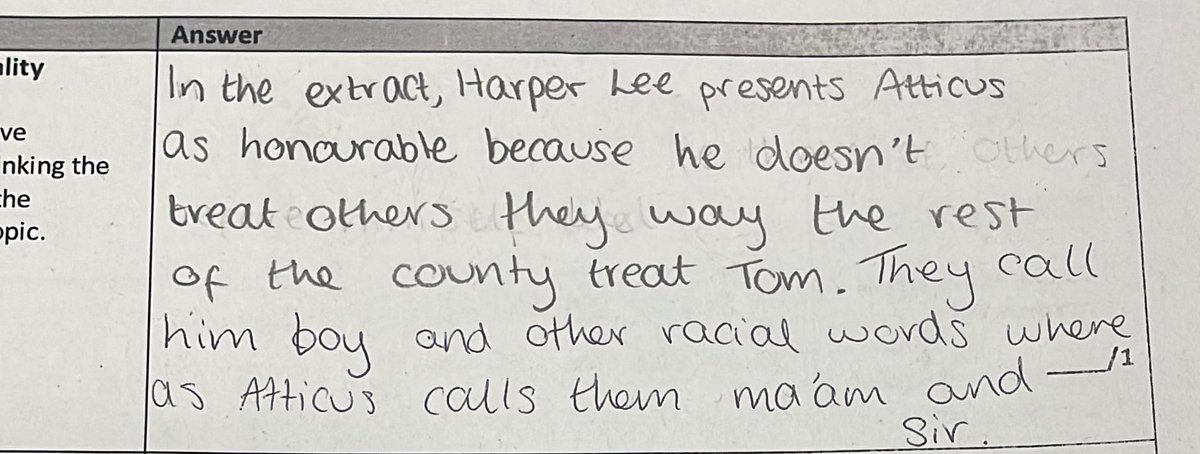 Answer
lity
In the extract, Harper Lee presents Atticus
ve
as honourable because he doesn't others
nking the
the
treat others they way the rest
pic.
of the county treat Tom. They call
him boy and other racial words where
as Atticus calls them ma'am and /1
Sir.